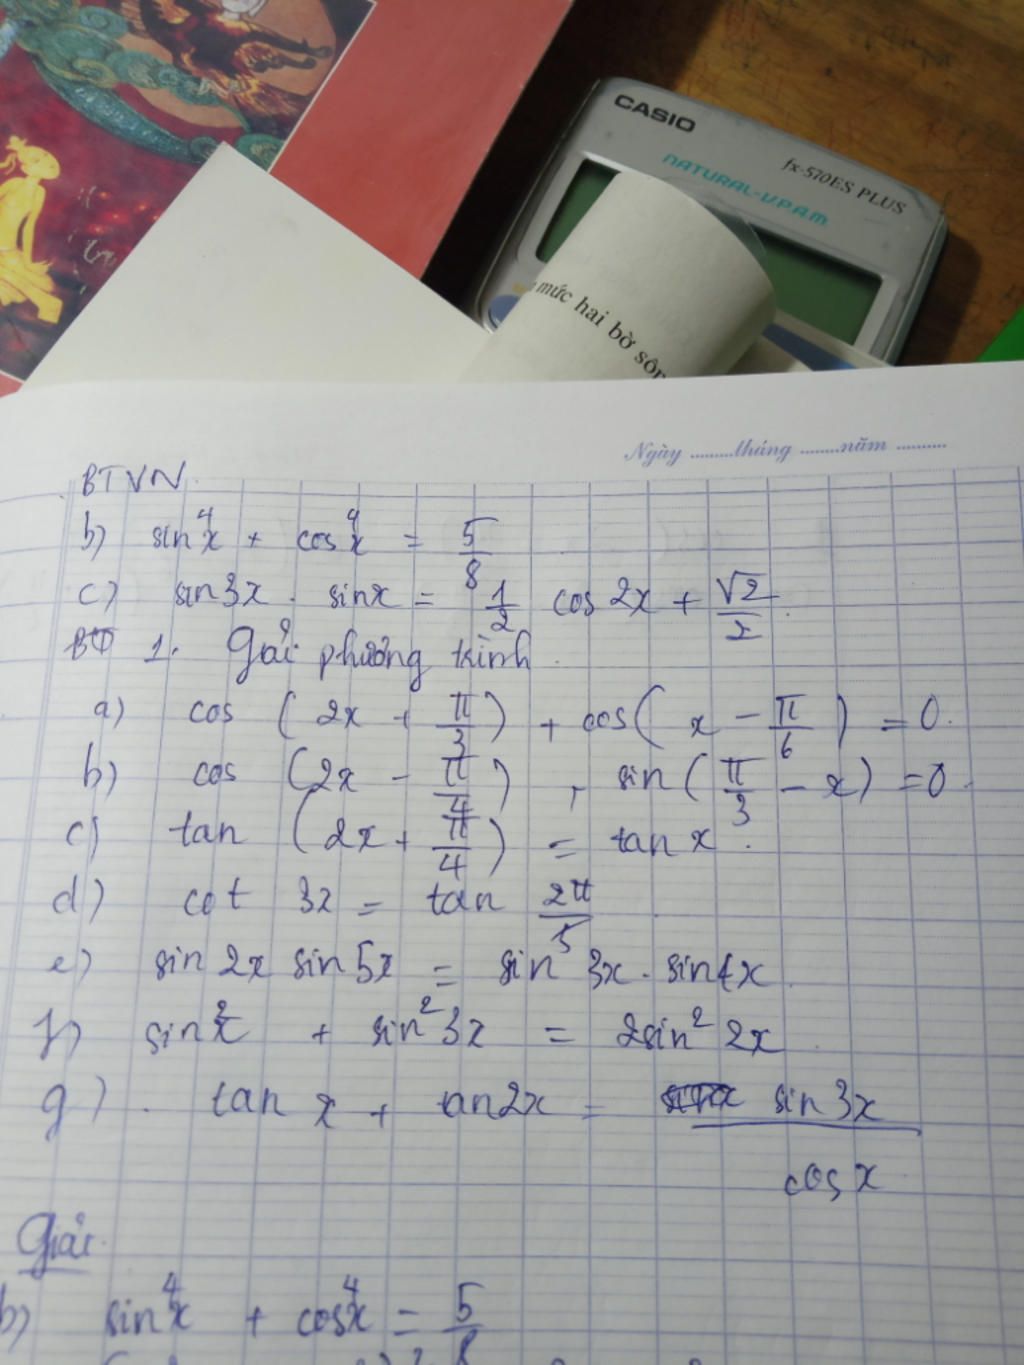 CASIO
fx-570ES PLUS
NATURAL-V.P.A.M.
mức hai bờ sôn
Ngày .........tháng ........năm ..........
BTVN.
b) sin⁴x + cos⁴x = 5/8
c) sin3x . sinx = 1/2 cos 2x + √2/2.
BT 1. Giải phương trình.
a) cos (2x + π/3) + cos(x - π/6) = 0.
b) cos (2x - π/4) , sin(π/3 - x) = 0.
c) tan (2x + π/4) = tan x.
d) cot 3x = tan 2π/5
e) sin 2x sin 5x = sin 3x . sin4x.
f) sin²x + sin² 3x = 2sin² 2x.
g) . tan x + tan2x = sin 3x/cos x
Giải.
b) sin⁴x + cos⁴x = 5/8